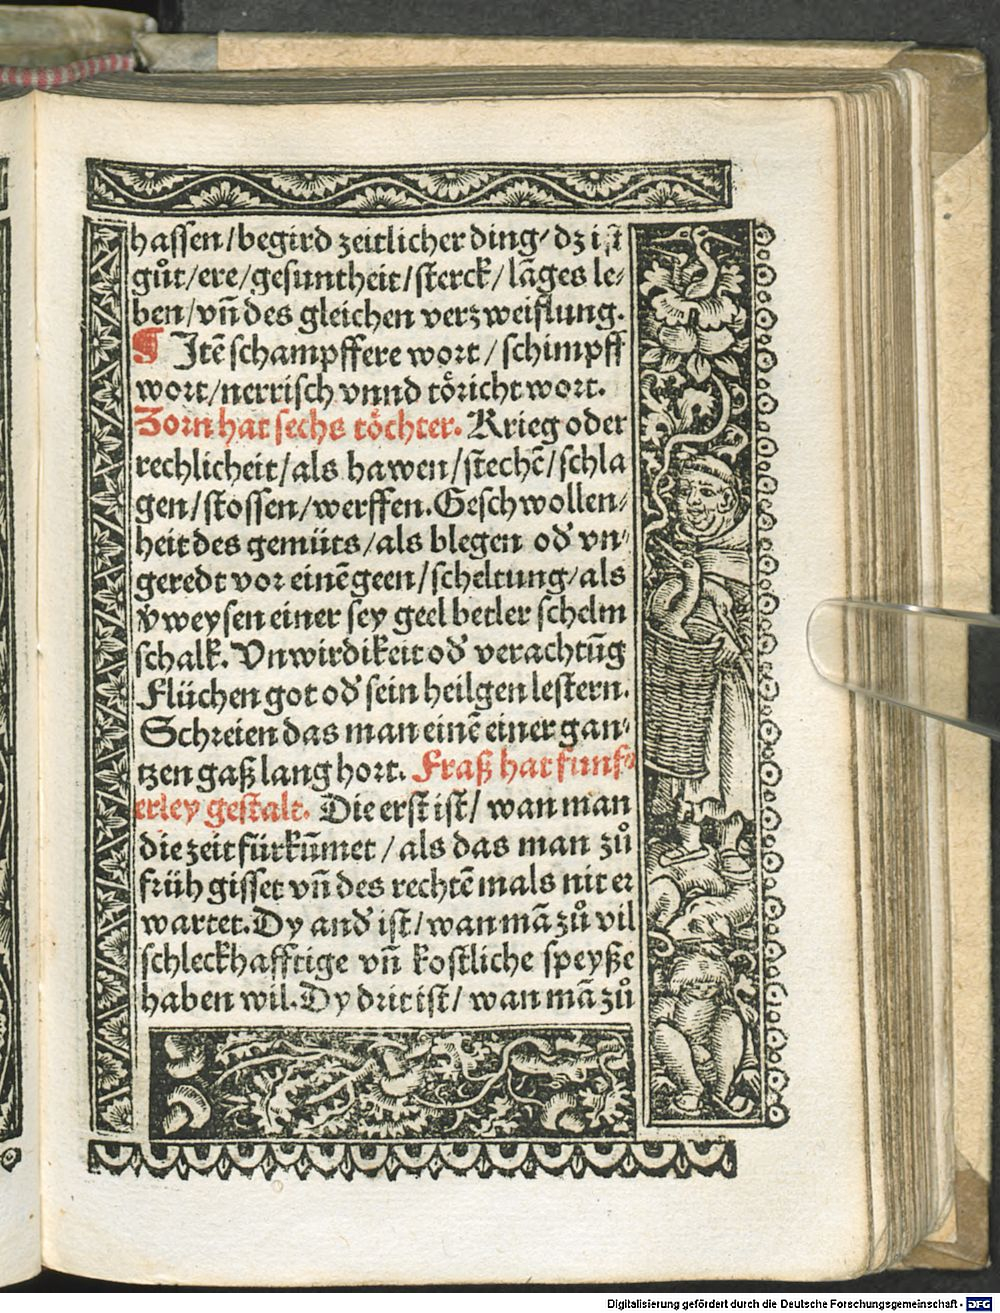 hassen/begird zeitlicher ding/ dz ist
gůt/ere/gesuntheit/sterck/lãges le⸗
ben/vñ des gleichen verzweiflung.
¶ Jtẽ schampffere wort/ schimpff
wort/nerrisch vnnd tӧricht wort.
Zorn hat sechs tӧchter. Krieg oder
rechlicheit/als hawen/stechẽ/schla
gen/stossen/werffen. Geschwollen⸗
heit des gemüts/als blegen od' vn⸗
geredt vor einẽ geen/scheltung/als
v̓weysen einer sey geel betler schelm
schalk. Vnwirdikeit od' verachtũg
Flüchen got od' sein heilgen lestern.
Schreien das man einẽ einer gan⸗
tzen gaß lang hort. Fraß hat funf⸗
erley gestalt. Die erst ist/ wan man
die zeit fürkũmet/als das man zů
früh gisset vñ des rechtẽ mals nit er
wartet. Dy and' ist/wan mã zů vil
schleckhafftige vñ kostliche speyße
haben wil. Dy drit ist/ wan mã zů
Digitalisierung gefördert durch die Deutsche Forschungsgemeinschaft - DFG